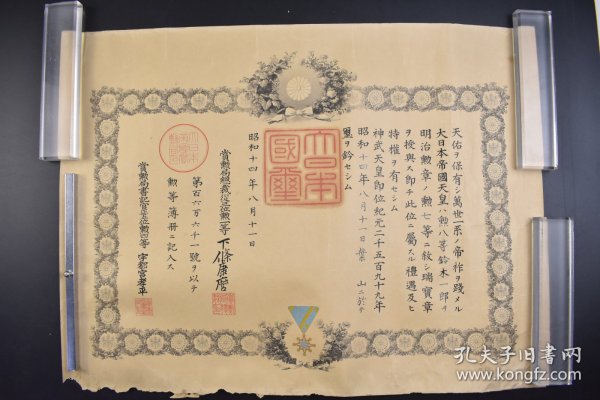 天佑ヲ保有シ萬世一系ノ帝祚ヲ踐メル
大日本帝國天皇ハ勲八等鈴木一郎ヲ
明治勲章ノ勲七等ニ敘シ瑞寶章
ヲ授與ス即チ此位ニ屬スル禮遇及ヒ
特權ヲ有セシム
神武天皇即位紀元二千五百九十九年
昭和十四年八月十一日葉山ニ於テ
璽ヲ鈐セシム
大日本國璽
昭和十四年八月十一日
賞勲局總裁從三位勲一等下條康麿
第百六万六千一號ヲ以テ
勲等簿冊ニ記入ス
賞勲局書記官正五位勲四等宇都宮孝平
孔夫子旧书网
www.kongfz.com